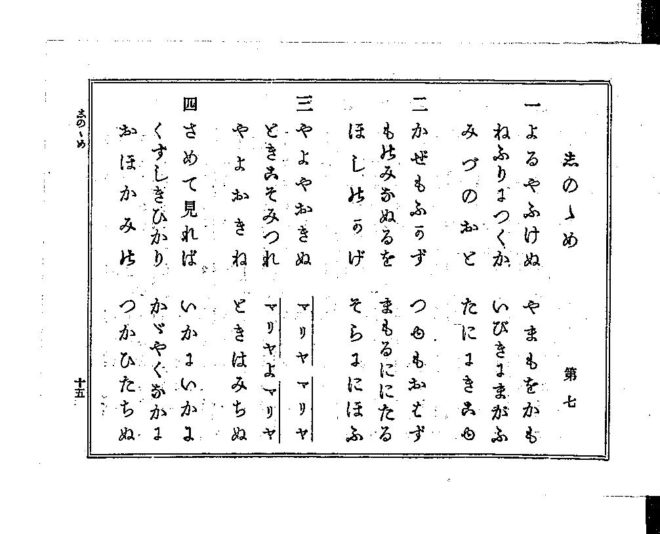 しのゝめ 第七
一 よるやふけぬ やまもをかも
ねふりにつくか いびきにまがふ
みづのおと たににきこゆ
二 かぜもふかず つゆもおちず
ものみなぬるを まもるににたる
ほしのかげ そらににほふ
三 やよやおきぬ マリヤ マリヤ
ときこそみつれ マリヤよマリヤ
やよおきね ときはみちぬ
四 さめて見れば いかにいかに
くすしきひかり かゞやくなかに
おほかみの つかひたちぬ
しのゝめ
十五